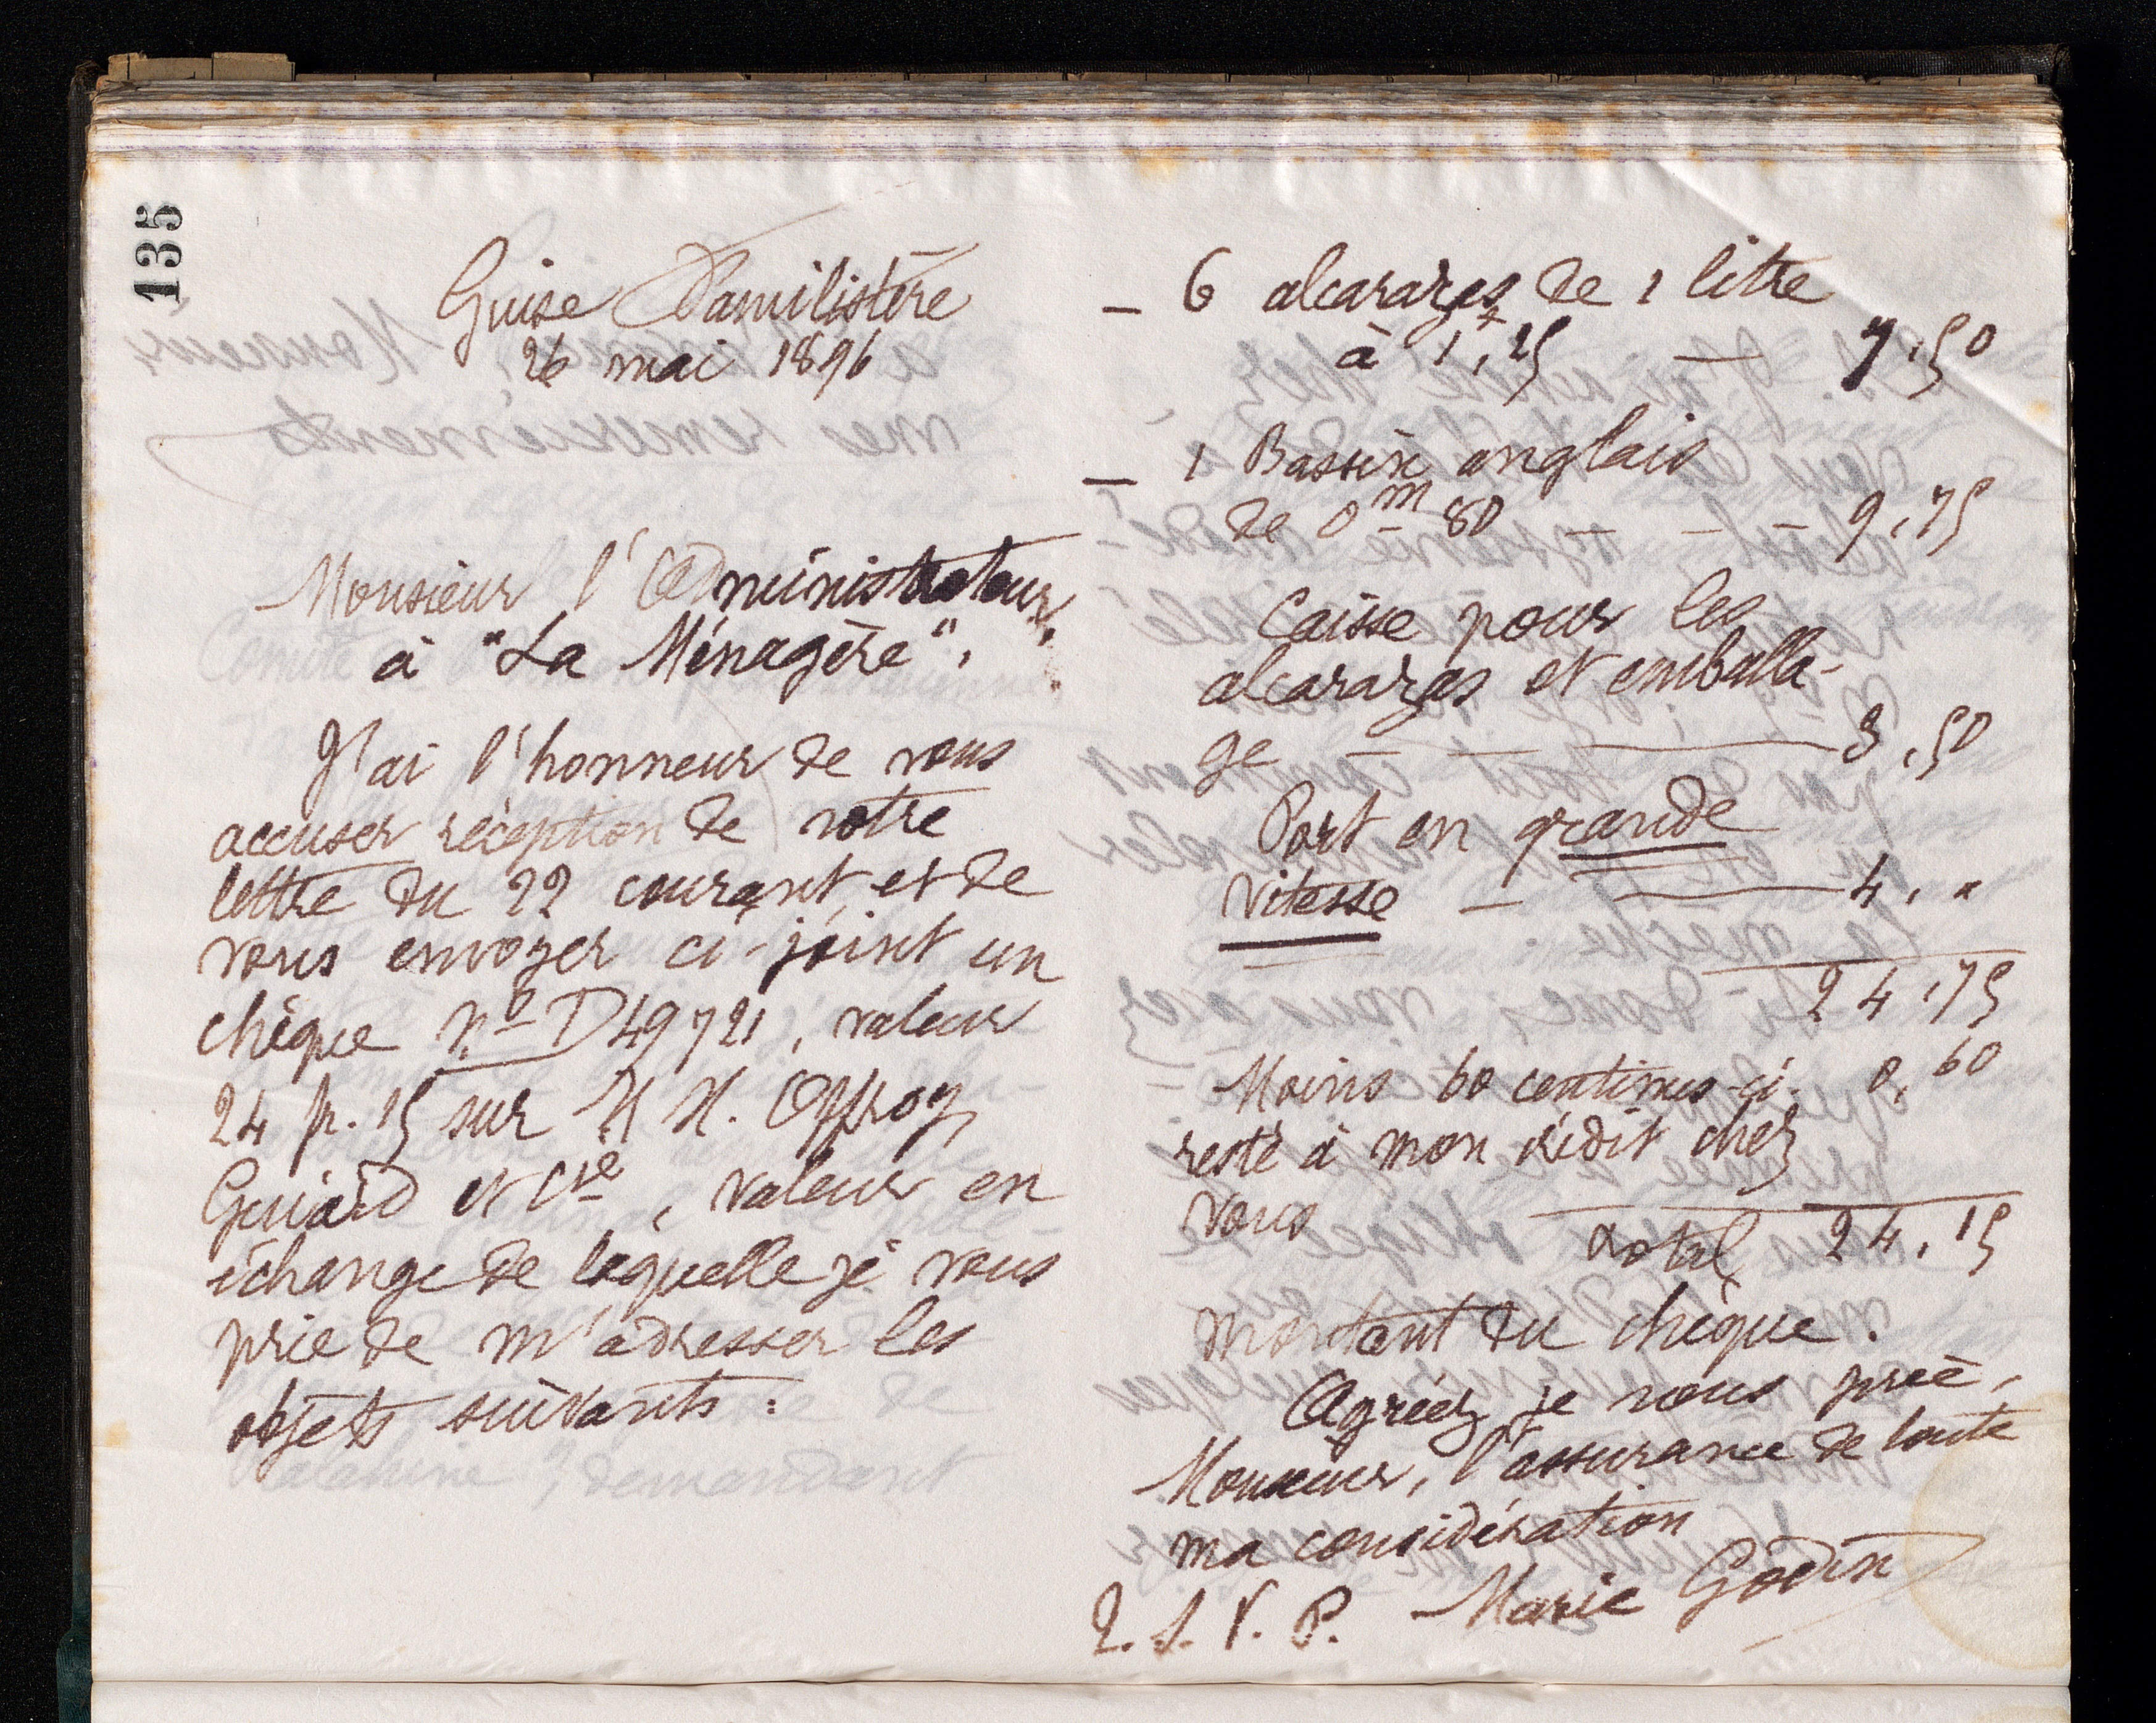 135
Guise Familistère
26 mai 1896
Monsieur l'Administrateur,
à "La Ménagère",
J'ai l'honneur de vous
accuser réception de votre
lettre du 22 courant, et de
vous envoyer ci-joint un
chèque nº D49721, valeur
24 fr. 15 sur M M. Offroy,
Guiard et Cie, valeur en
échange de laquelle je vous
prie de m'adresser les
objets suivants :
— 6 alcarazas de 1 litre
à 1f,25 — 7,50
— 1 Bassin anglais
de 0m 80 — — — 9,75
Caisse pour les
alcarazas et emballa-
ge — — — 3,50
Port en grande
vitesse — — 4, "
24,75
Moins 60 centimes ci. 0,60
resté à mon crédit chez
vous
total 24,15
montant du chèque.
Agréez, je vous prie,
Monsieur, l'assurance de toute
ma considération
T. S. V. P. Marie Godin